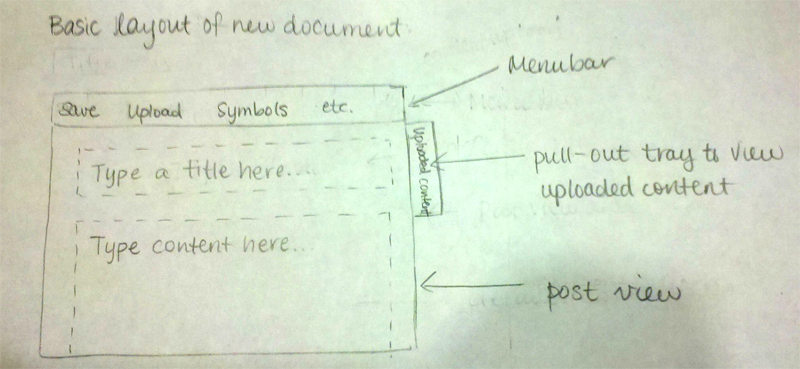 Basic layout of new document
Menubar
Save Upload Symbols etc.
Uploaded content
Type a title here...
pull-out tray to view
uploaded content
Type content here...
post view